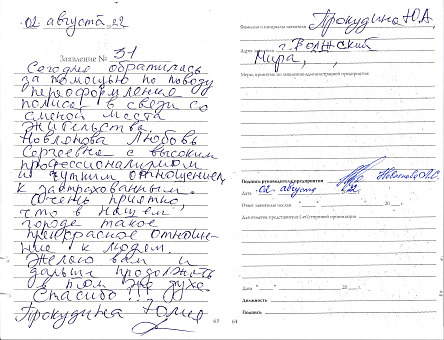 02 августа 22
Заявление № 31
Сегодня обратилась
за помощью по поводу
переоформления
полиса в связи со
сменой места
жительства.
Любовь
Сергеевна с высоким
профессионализмом
и чутким отношением
к застрахованным.
Очень приятно,
что в нашем
городе такое
прекрасное отноше-
ние к людям.
Желаю вам и
дальше продолжать
в том же духе
Спасибо !!!
Прокудина Юлия
63
Фамилия и инициалы заявителя Прокудина Ю.А.
Адрес заявителя г. Волжский
Мира,
Меры, принятые по заявлению администрацией предприятия:
Подпись руководителя предприятия
Дата 02 августа 22
Ответ заявителю послан " " 20 г.
Для отметки представителя
Дата " " 20 г.
Должность
Подпись
64